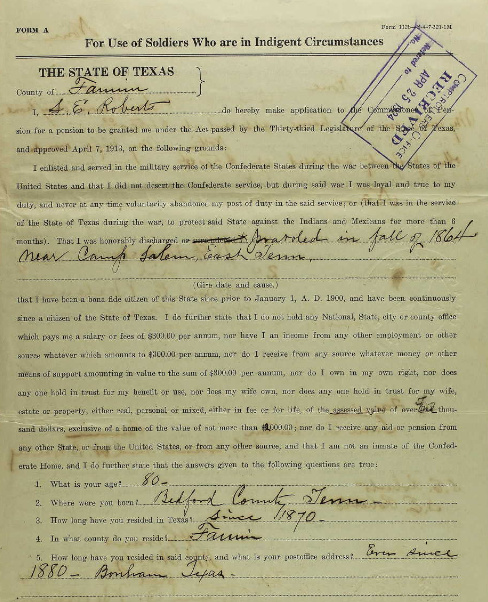 FORM A
For Use of Soldiers Who are in Indigent Circumstances
THE STATE OF TEXAS
County of Fannin
I, S. E. Roberts do hereby make application to the Commissioner of Pen-
sion for a pension to be granted me under the Act passed by the Thirty-third Legislature of the State of Texas,
and approved April 7, 1913, on the following grounds:
I enlisted and served in the military service of the Confederate States during the war between the States of the
United States and that I did not desert the Confederate service, but during said war I was loyal and true to my
duty, and never at any time voluntarily abandoned my post of duty in the said service; or (that I was in the service
of the State of Texas during the war, to protect said State against the Indians and Mexicans for more than 6
months). That I was honorably discharged or paroled in fall of 1864
near Camp Salem, East Tenn.
(Give date and cause.)
that I have been a bona fide citizen of this State since prior to January 1, A. D. 1900, and have been continuously
since a citizen of the State of Texas. I do further state that I do not hold any National, State, city or county office
which pays me a salary or fees of $300.00 per annum, nor have I an income from any other employment or other
source whatever which amounts to $300.00 per annum, nor do I receive from any source whatever money or other
means of support amounting in value to the sum of $300.00 per annum, nor do I own in my own right, nor does
any one hold in trust for my benefit or use, nor does my wife own, nor does any one hold in trust for my wife,
estate or property, either real, personal or mixed, either in fee or for life, of the assessed value of over thou-
sand dollars, exclusive of a home of the value of not more than 000.00; nor do I receive any aid or pension from
any other State, or from the United States, or from any other source, and that I am not an inmate of the Confed-
erate Home, and I do further state that the answers given to the following questions are true:
1. What is your age? 80-
2. Where were you born? Bedford County Tenn-
3. How long have you resided in Texas? Since 1870-
4. In what county do you reside? Fannin
5. How long have you resided in said county and what is your postoffice address? Ever since
1880- Bonham Texas-
RECEIVED
APR 25 1924
COMPTROLLER'S OFFICE
Referred to